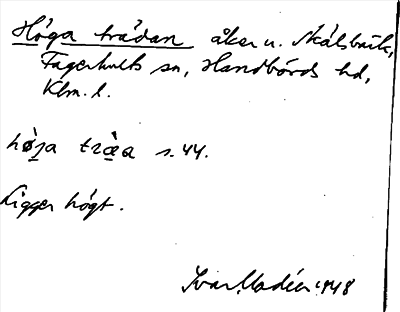 Höga trädan åker u. Skälsbäck,
Fagerhults sn, Handbörds hd,
Klm. l.
hö̀ga træ̀a s. 44.
Ligger högt.
Ivar Modéer 1948